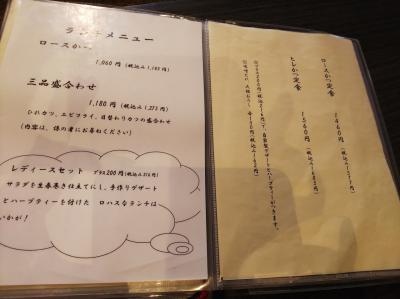 ランチメニュー
ロースかつ
1,060円（税込み1,145円）
三品盛合わせ
1,180円（税込み1,275円）
ひれカツ、エビフライ、日替わりカツの盛合わせ
（内容は、係の者にお尋ねください）
レディースセット プラス200円（税込み216円）
サラダを生春巻き仕立てにし、手作りデザート
とハーブティーを付けた ロハスなランチは
いかが！
ロースかつ定食
1460円
ヒレかつ定食
1560円